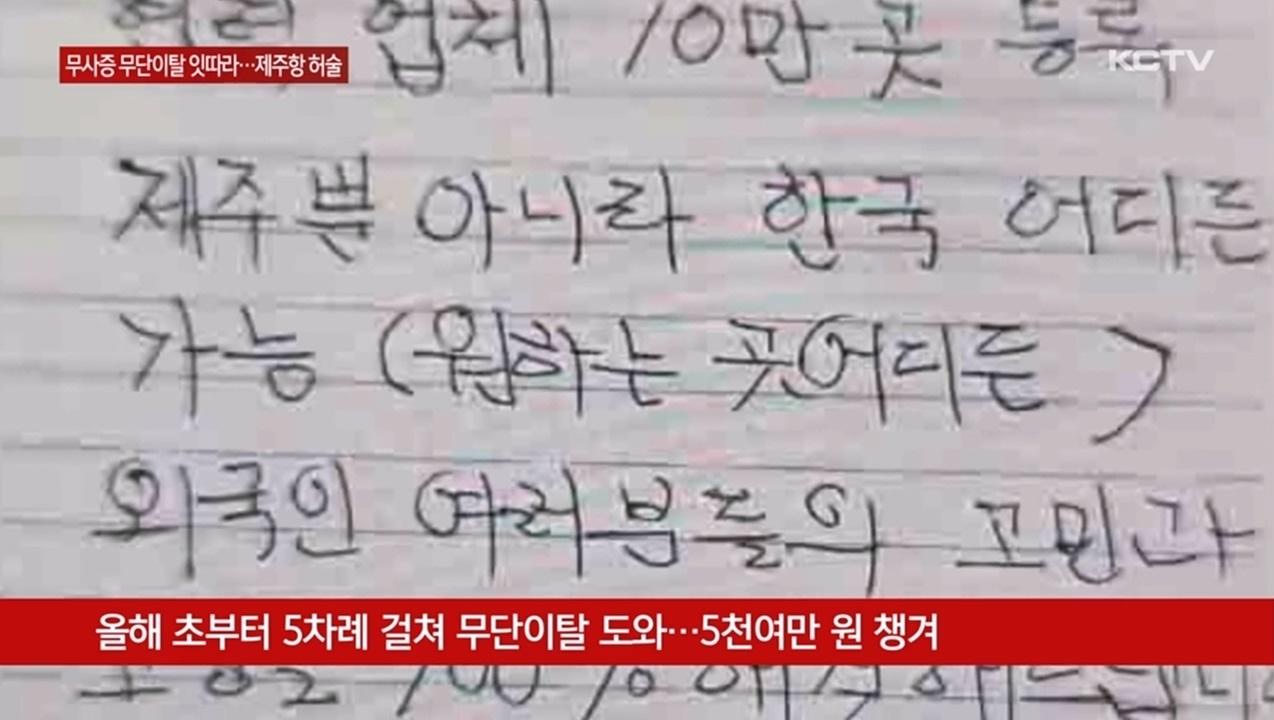 업체 10만 곳 등록
KCTV
무사증 무단이탈 잇따라…제주항 허술
제주뿐 아니라 한국 어디든
가능 (원하는 곳어디든)
외국인 여러분들의 고민과
올해 초부터 5차례 걸쳐 무단이탈 도와…5천여만 원 챙겨
100%